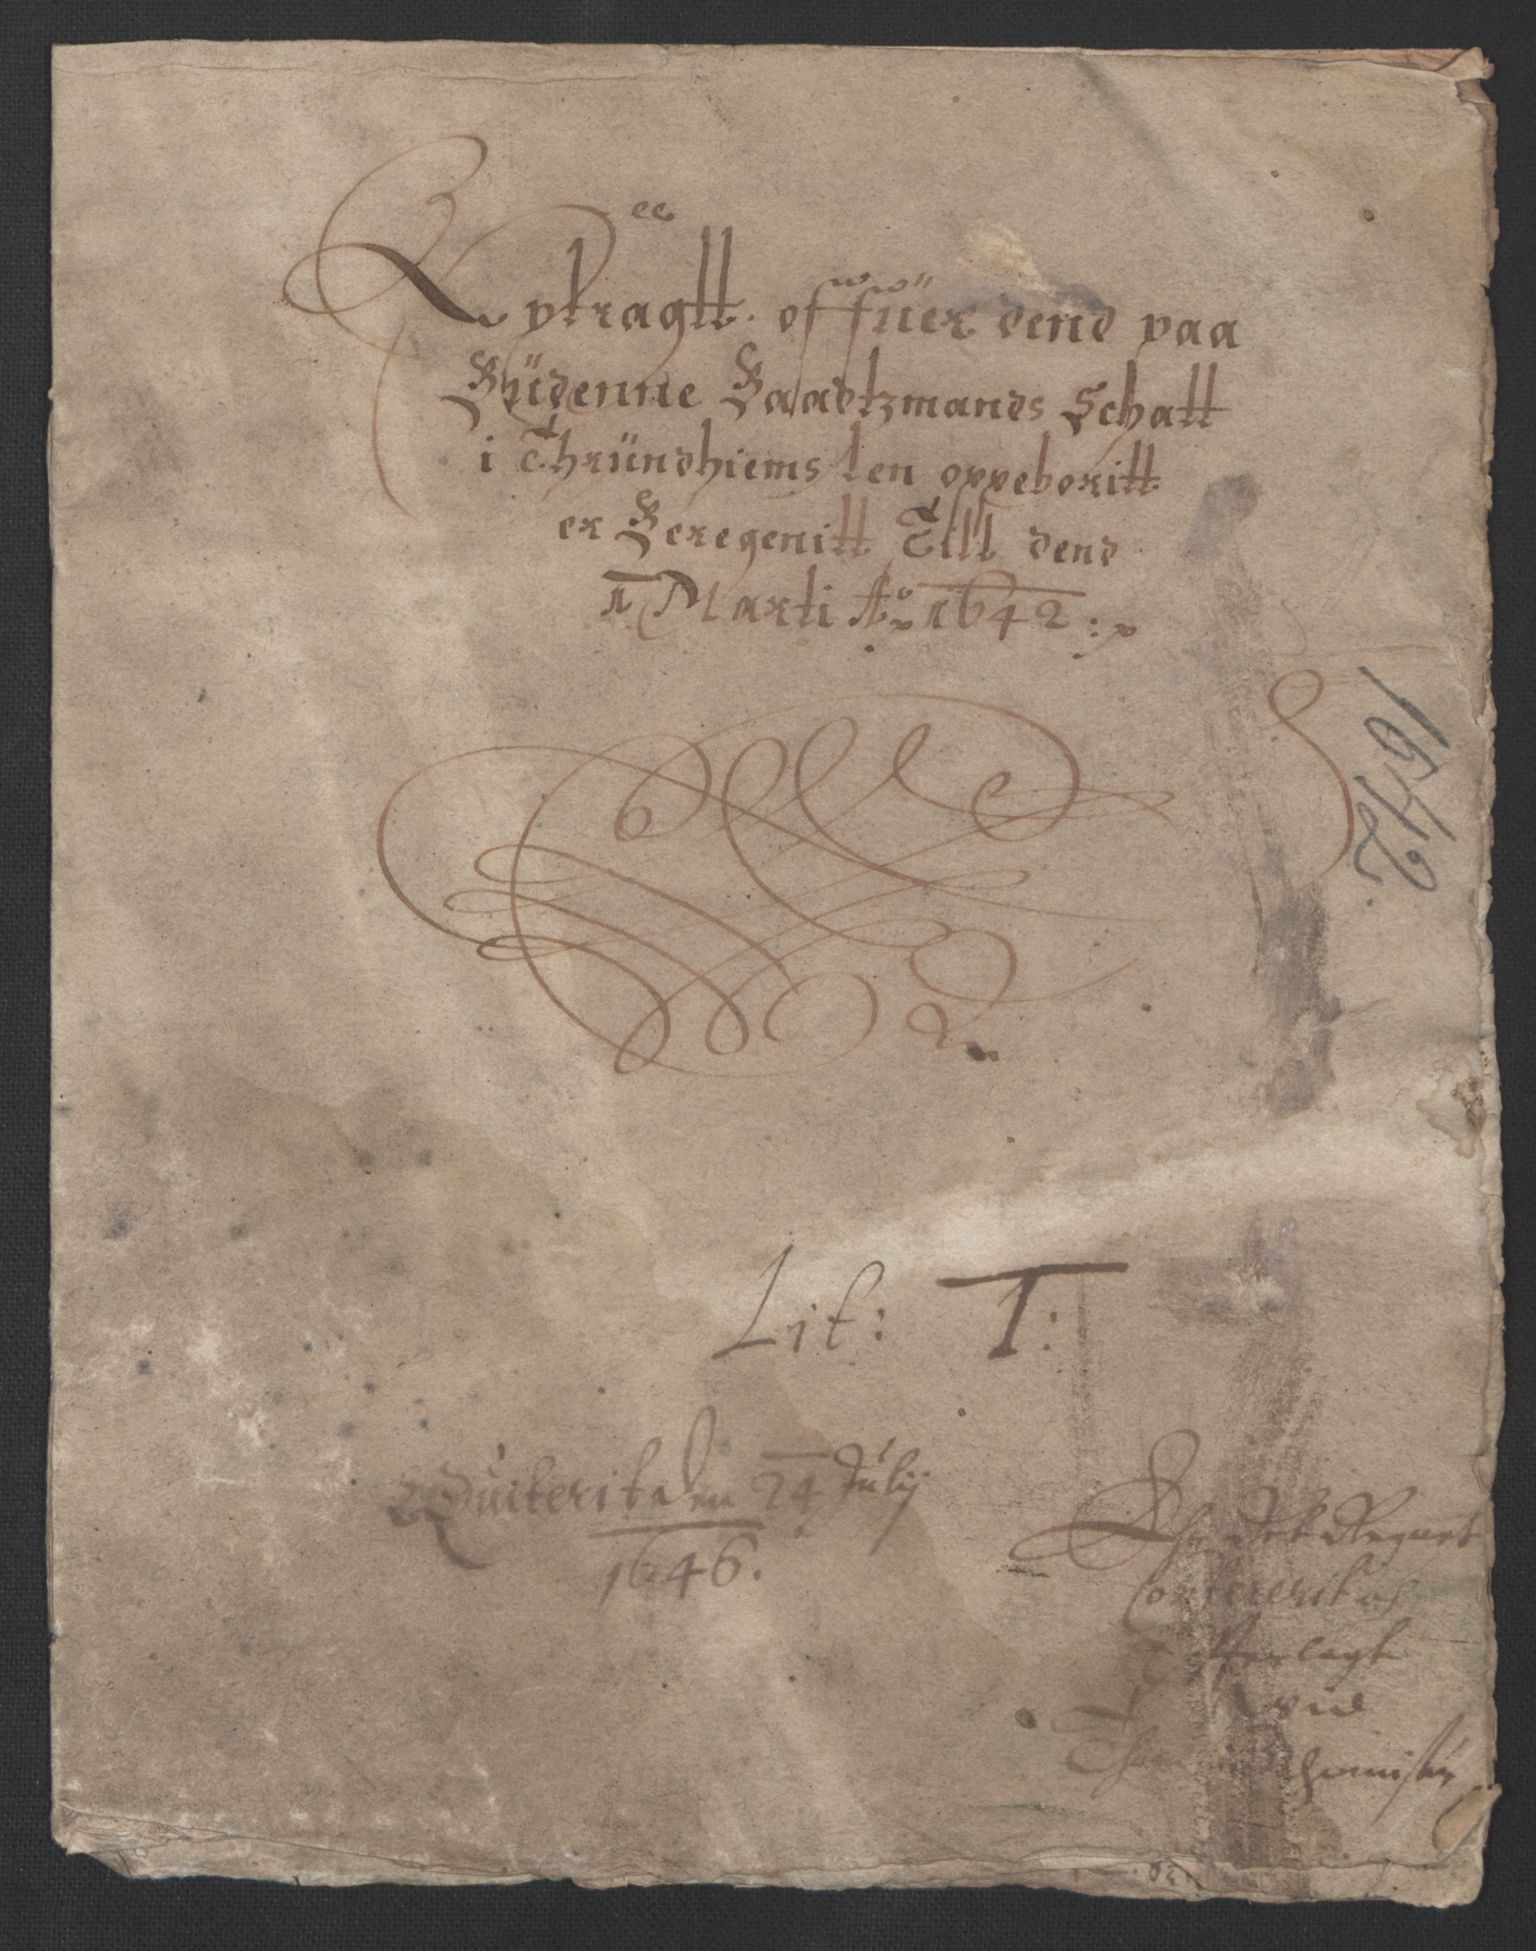 Extragtt offüer dend paa
Büdenne Baadtzmands Schatt
i Thründhiems len oppeboritt
er Beregenitt Till dend
1 Marti Ao 1642 :
1642
Lit: T:
Quiterit den 24 Julij
1646.
Regnet
Confererit och